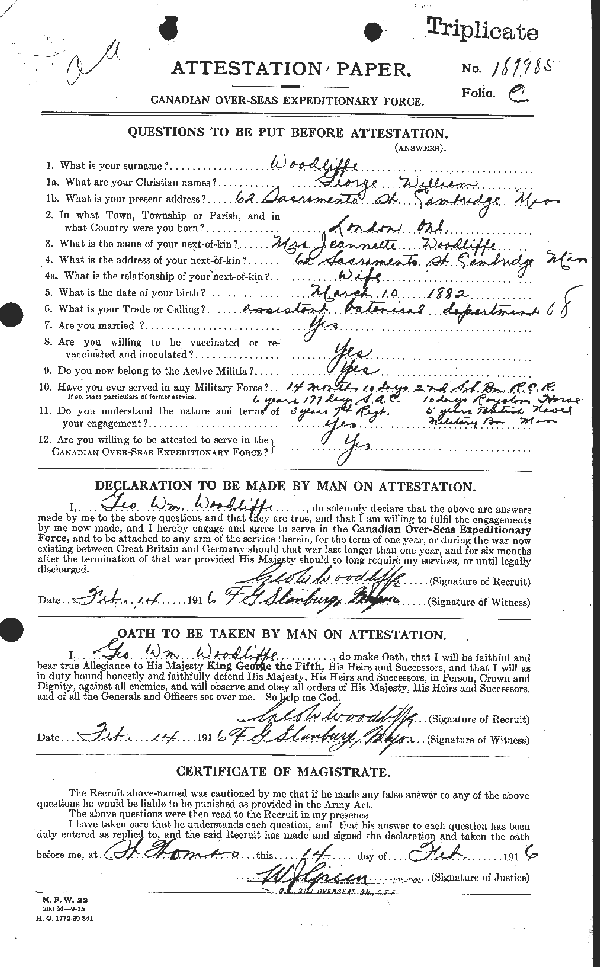 Triplicate
ATTESTATION PAPER.
No. 189985
Folio. C
CANADIAN OVER-SEAS EXPEDITIONARY FORCE.
QUESTIONS TO BE PUT BEFORE ATTESTATION.
(ANSWERS).
1. What is your surname? Woodliffe
1a. What are your Christian names? George William
1b. What is your present address? 62 Sacramento St. Cambridge Mass
2. In what Town, Township or Parish, and in
what Country were you born? London Ont.
3. What is the name of your next-of-kin? Mrs Jeannette Woodliffe
4. What is the address of your next-of-kin? 62 Sacramento St Cambridge Mass
4a. What is the relationship of your next-of-kin? Wife
5. What is the date of your birth? March 10 1882
6. What is your Trade or Calling? assistant botanical department
7. Are you married? Yes
8. Are you willing to be vaccinated or re-
vaccinated and inoculated? Yes
9. Do you now belong to the Active Militia? Yes
10. Have you ever served in any Military Force? 14 months 10 days 2nd Bn R.C.R.
If so, state particulars of former service. 6 years 177 days S.A.C. 10 days Horse
11. Do you understand the nature and terms of 3 years 7th Regt. 5 years
your engagement? yes Military Mass
12. Are you willing to be attested to serve in the
CANADIAN OVER-SEAS EXPEDITIONARY FORCE? Yes
DECLARATION TO BE MADE BY MAN ON ATTESTATION.
I, Geo Wm. Woodliffe, do solemnly declare that the above are answers
made by me to the above questions and that they are true, and that I am willing to fulfil the engagements
by me now made, and I hereby engage and agree to serve in the Canadian Over-Seas Expeditionary
Force, and to be attached to any arm of the service therein, for the term of one year, or during the war now
existing between Great Britain and Germany should that war last longer than one year, and for six months
after the termination of that war provided His Majesty should so long require my services, or until legally
discharged.
Geo W Woodliffe (Signature of Recruit)
Date Feb. 14 1916 F G Stanbury, Major (Signature of Witness)
OATH TO BE TAKEN BY MAN ON ATTESTATION.
I, Geo Wm. Woodliffe, do make Oath, that I will be faithful and
bear true Allegiance to His Majesty King George the Fifth, His Heirs and Successors, and that I will as
in duty bound honestly and faithfully defend His Majesty, His Heirs and Successors, in Person, Crown and
Dignity, against all enemies, and will observe and obey all orders of His Majesty, His Heirs and Successors,
and of all the Generals and Officers set over me. So help me God.
Geo W Woodliffe (Signature of Recruit)
Date Feb. 14 1916 F G Stanbury, Major (Signature of Witness)
CERTIFICATE OF MAGISTRATE.
The Recruit above-named was cautioned by me that if he made any false answer to any of the above
questions he would be liable to be punished as provided in the Army Act.
The above questions were then read to the Recruit in my presence.
I have taken care that he understands each question, and that his answer to each question has been
duly entered as replied to, and the said Recruit has made and signed the declaration and taken the oath
before me, at St Thomas this 14 day of Feb 1916
W J Green (Signature of Justice)
M. F. W. 23
H. Q. 1772-39-841